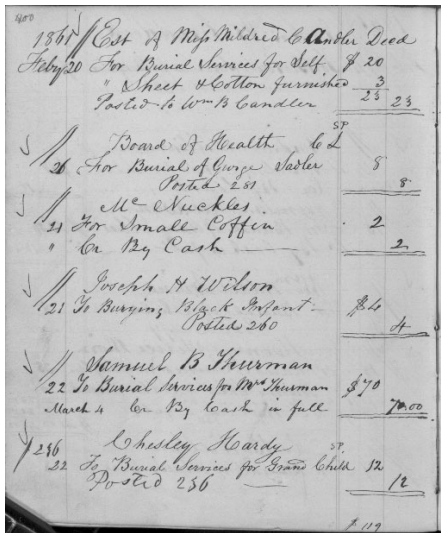 1865 // Est of Miss Mildred C Candler Decd
Feby 20 For Burial Services for Self $ 20
" Sheet & Cotton furnished 3
Posted to Wm B Candler 23 23
// Board of Health C L SP
26 For Burial of George Sadler 8
Posted 251 8
// Mc Nuckles
21 For Small Coffin 2
" Cr By Cash 2
// Joseph H Wilson
21 To Burying Black Infant $4
Posted 260 4
// Samuel B Thurman
22 To Burial Services for Mrs Thurman $70
March 4 Cr By Cash in full 70.00
256 Chesley Hardy SP
22 To Burial Services for Grand Child 12
Posted 256 12
$ 119